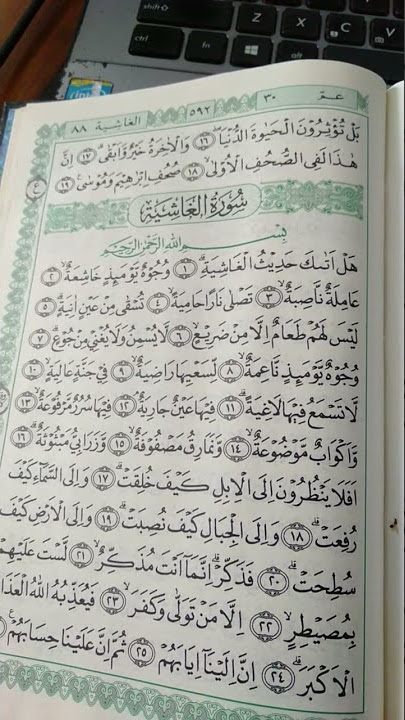 عمّ ٣٠ ٥٩٢ الغاشية ٨٨
بَلْ تُؤْثِرُوْنَ الْحَيٰوةَ الدُّنْيَا ١٦ وَالْاٰخِرَةُ خَيْرٌ وَّاَبْقٰى ١٧ اِنَّ
هٰذَا لَفِى الصُّحُفِ الْاُوْلٰى ١٨ صُحُفِ اِبْرٰهِيْمَ وَمُوْسٰى ١٩
ع
سُوْرَةُ الْغَاشِيَةِ
بِسْمِ اللهِ الرَّحْمٰنِ الرَّحِيْمِ
هَلْ اَتٰىكَ حَدِيْثُ الْغَاشِيَةِ ١ وُجُوْهٌ يَّوْمَئِذٍ خَاشِعَةٌ ٢
عَامِلَةٌ نَّاصِبَةٌ ٣ تَصْلٰى نَارًا حَامِيَةً ٤ تُسْقٰى مِنْ عَيْنٍ اٰنِيَةٍ ٥
لَيْسَ لَهُمْ طَعَامٌ اِلَّا مِنْ ضَرِيْعٍ ٦ لَّا يُسْمِنُ وَلَا يُغْنِيْ مِنْ جُوْعٍ ٧
وُجُوْهٌ يَّوْمَئِذٍ نَّاعِمَةٌ ٨ لِّسَعْيِهَا رَاضِيَةٌ ٩ فِيْ جَنَّةٍ عَالِيَةٍ ١٠
لَّا تَسْمَعُ فِيْهَا لَاغِيَةً ١١ فِيْهَا عَيْنٌ جَارِيَةٌ ١٢ فِيْهَا سُرُرٌ مَّرْفُوْعَةٌ ١٣
وَّاَكْوَابٌ مَّوْضُوْعَةٌ ١٤ وَّنَمَارِقُ مَصْفُوْفَةٌ ١٥ وَّزَرَابِيُّ مَبْثُوْثَةٌ ١٦
اَفَلَا يَنْظُرُوْنَ اِلَى الْاِبِلِ كَيْفَ خُلِقَتْ ١٧ وَاِلَى السَّمَآءِ كَيْفَ
رُفِعَتْ ١٨ وَاِلَى الْجِبَالِ كَيْفَ نُصِبَتْ ١٩ وَاِلَى الْاَرْضِ كَيْفَ
سُطِحَتْ ٢٠ فَذَكِّرْ اِنَّمَآ اَنْتَ مُذَكِّرٌ ٢١ لَسْتَ عَلَيْهِمْ
بِمُصَيْطِرٍ ٢٢ اِلَّا مَنْ تَوَلّٰى وَكَفَرَ ٢٣ فَيُعَذِّبُهُ اللهُ الْعَذَا
الْاَكْبَرَ ٢٤ اِنَّ اِلَيْنَآ اِيَابَهُمْ ٢٥ ثُمَّ اِنَّ عَلَيْنَا حِسَابَهُمْ
Z
X
C
ctrl
fn
alt